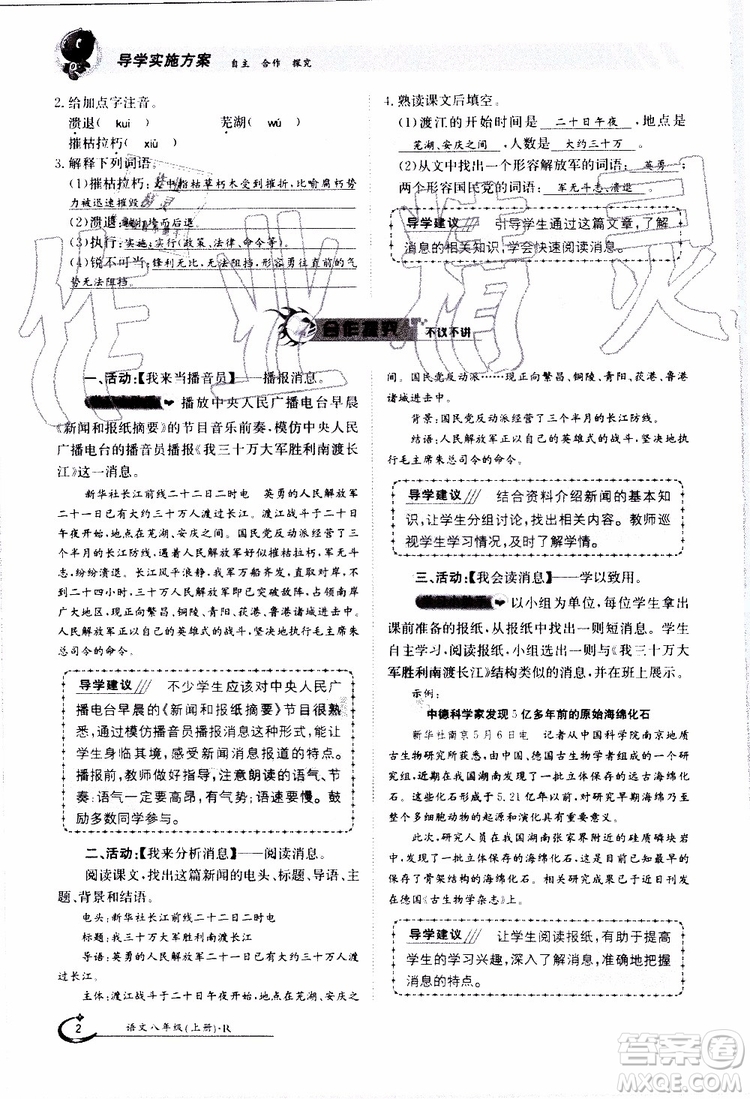 导学实施方案 自主 合作 探究
2.给加点字注音。
溃退( kuì ) 芜湖( wú )
摧枯拉朽( xiǔ )
3.解释下列词语。
(1)摧枯拉朽:
枯草朽木受到摧折,比喻腐朽势
力被迅速摧毁
(2)溃退:
后退。
(3)执行:实施;实行(政策、法律、命令等)。
(4)锐不可当:锋利无比,无法阻挡,形容勇往直前的气
势无法阻挡。
4.熟读课文后填空。
(1)渡江的开始时间是 二十日午夜 ,地点是
芜湖、安庆之间 ,人数是 大约三十万 。
(2)从文中找出一个形容解放军的词语: 英勇 ;
两个形容国民党的词语: 军无斗志、溃退 。
导学建议 引导学生通过这篇文章,了解
消息的相关知识,学会快速阅读消息。
合作探究 不议不讲
一、活动:【我来当播音员】——播报消息。
播放中央人民广播电台早晨
《新闻和报纸摘要》的节目音乐前奏,模仿中央人民
广播电台的播音员播报《我三十万大军胜利南渡长
江》这一消息。
新华社长江前线二十二日二时电 英勇的人民解放军
二十一日已有大约三十万人渡过长江。渡江战斗于二十日
午夜开始,地点在芜湖、安庆之间。国民党反动派经营了三
个半月的长江防线,遇着人民解放军好似摧枯拉朽,军无斗
志,纷纷溃退。长江风平浪静,我军万船齐放,直取对岸,不
到二十四小时,三十万人民解放军即已突破敌阵,占领南岸
广大地区,现正向繁昌、铜陵、青阳、荻港、鲁港诸城进击中。
人民解放军正以自己的英雄式的战斗,坚决地执行毛主席朱
总司令的命令。
导学建议 不少学生应该对中央人民广
播电台早晨的《新闻和报纸摘要》节目很熟
悉,通过模仿播音员播报消息这种形式,能让
学生身临其境,感受新闻消息报道的特点。
播报前,教师做好提示:注意朗读的语气、节
奏:语气一定要高昂,有力度;语速要慢。鼓
励多数同学参与。
二、活动:【我来分析消息】——阅读消息。
阅读课文,找出这篇新闻的电头、标题、导语、主
题、背景和结语。
电头:新华社长江前线二十二日二时电
标题:我三十万大军胜利南渡长江
导语:英勇的人民解放军二十一日已有大约三十万人渡
过长江。
主体:渡江战斗于二十日午夜开始,地点在芜湖、安庆之
间。国民党反动派……现正向繁昌、铜陵、青阳、荻港、鲁港
诸城进击中。
背景:国民党反动派经营了三个半月的长江防线。
结语:人民解放军正以自己的英雄式的战斗,坚决地执
行毛主席朱总司令的命令。
导学建议 结合资料介绍新闻的基本知
识,让学生分组讨论,找出相关内容。教师巡
视学生学习情况,及时了解学情。
三、活动:【我会读消息】——学以致用。
以小组为单位,每位学生拿出
课前准备的报纸,从报纸中找出一则短消息。学生
自主学习,阅读消息,小组选出一则与《我三十万大
军胜利南渡长江》结构类似的消息,并在班上展示。
示例:
中德科学家发现5亿多年前的原始海绵化石
新华社南京5月6日电 记者从中国科学院南京地质
古生物研究所获悉,由中、德国古生物学者组成的一个研
究组,近日在我国湖南发现了一批立体保存的远古海绵化
石。这些化石形成于5.21亿年以前,对研究早期海绵动
物以及多细胞动物的起源和演化具有重要意义。
此次,研究人员在我国湖南张家界附近的硅质磷块岩
中,发现了一批立体保存的海绵化石。该研究组对其中保
存了骨架结构的海绵化石进行了研究,研究成果已于近日
在德国《古生物学杂志》上发表。
导学建议 让学生阅读报纸,有助于提高
学生的学习兴趣,深入了解消息,准确地把握
消息的特点。
2 语文八年级(上册)·R
作业精灵
答案圈
MXQE.COM